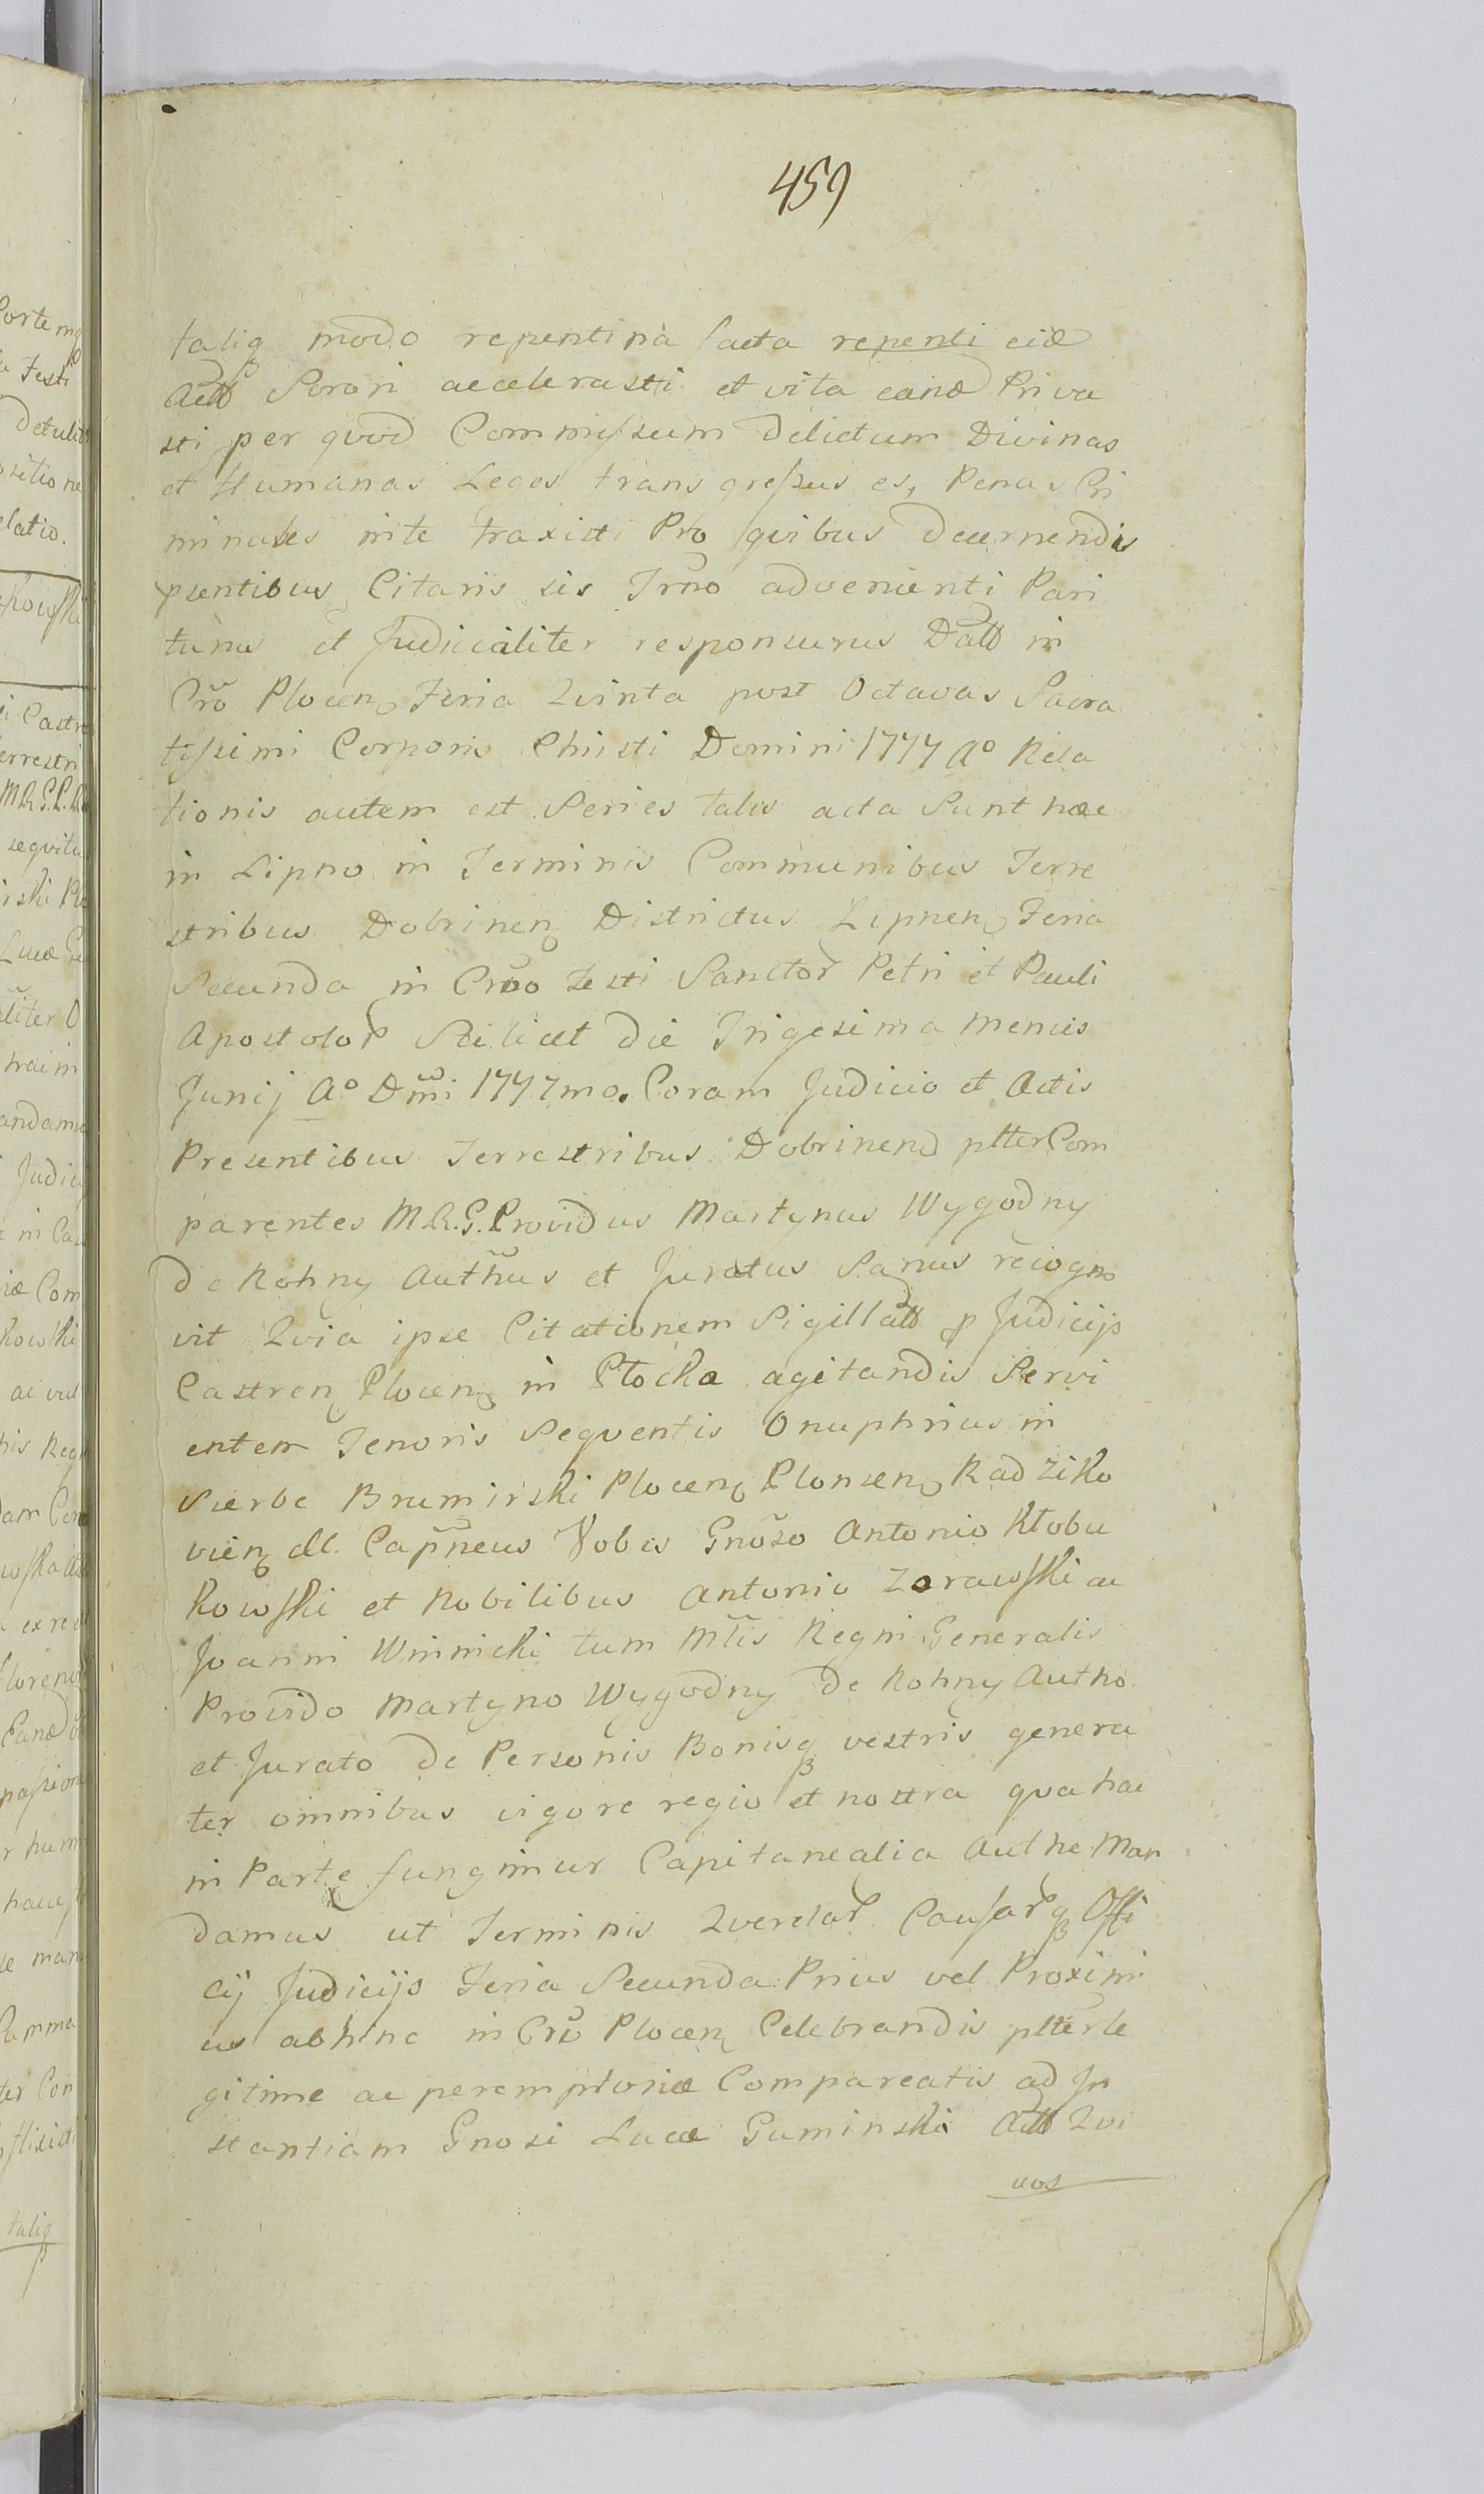 459
taliq modo repentina facta repenti eid
Actt Sorori accelerasti et vita eand Priva
sti per qvod Commissum Delictum Divinas
et Humanas Leges transgressus es, Penas Cri
minales in te traxisti Pro qvibus Decernendis
psentibus Citaris sis Trno advenienti Pari
turus et Judicialiter responsurus Datt in
Cro Plocen Feria Qvinta post Octavas Sacra
tissimi Corporis Christi Domini 1777 Ao Rela
tionis autem est Series talis acta Sunt hæc
in Lipno in Terminis Communibus Terre
stribus Dobrinen Districtus Lipnen Feria
Secunda in Cro Festi Sanctor Petri et Pauli
Apostolor Scilicet die Trigesima Mensis
Junij Ao Dmi 1777mo. Coram Judicio et Actis
Presentibus Terrestribus Dobrinens pltter Com
parentes M.R.G. Providus Martynus Wygodny
de Rohny Authus et Juratus Sanus recogno
vit Qvia ipse Citationem Sigillatt p Judicijs
Castren Plocen in Płocka agitandis Servi
entem Tenoris Seqventis Onuphrius in
Sierbc Bromirski Plocen Plonsen Radziko
vien ett. Capneus Vobis Gnoso Antonio Kłobu
kowski et Nobilibus Antonio Zorawski ac
Joanni Winnicki tum Mtis Regni Generalis
Provido Martyno Wygodny de Rohny Autho
et Jurato de Personis Bonisq vestris genera
ter omnibus vigore regio et nostra qva hac
in Parte fungimur Capitanealia Authe Man
damus ut Terminis Qverelar Causarq Offi
cij Judicijs Feria Secunda Prius vel Proximi
us abhinc in Cro Plocen Celebrandis pltter le
gitime ac peremptorie Compareatis ad In
stantiam Gnosi Lucæ Guminski Actt Qvi
vos